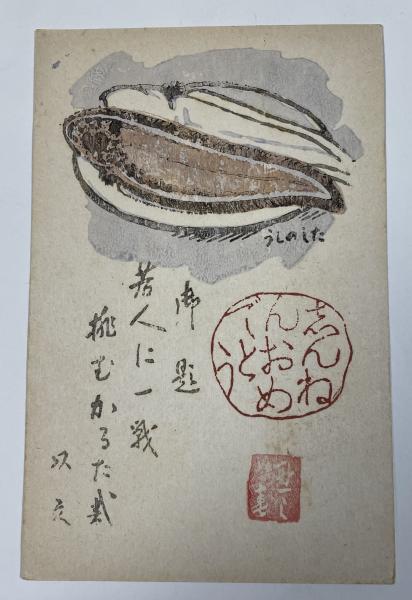 うしのした
御題
若人に一戦
挑むかるた哉
しんね
んおめ
でと
う